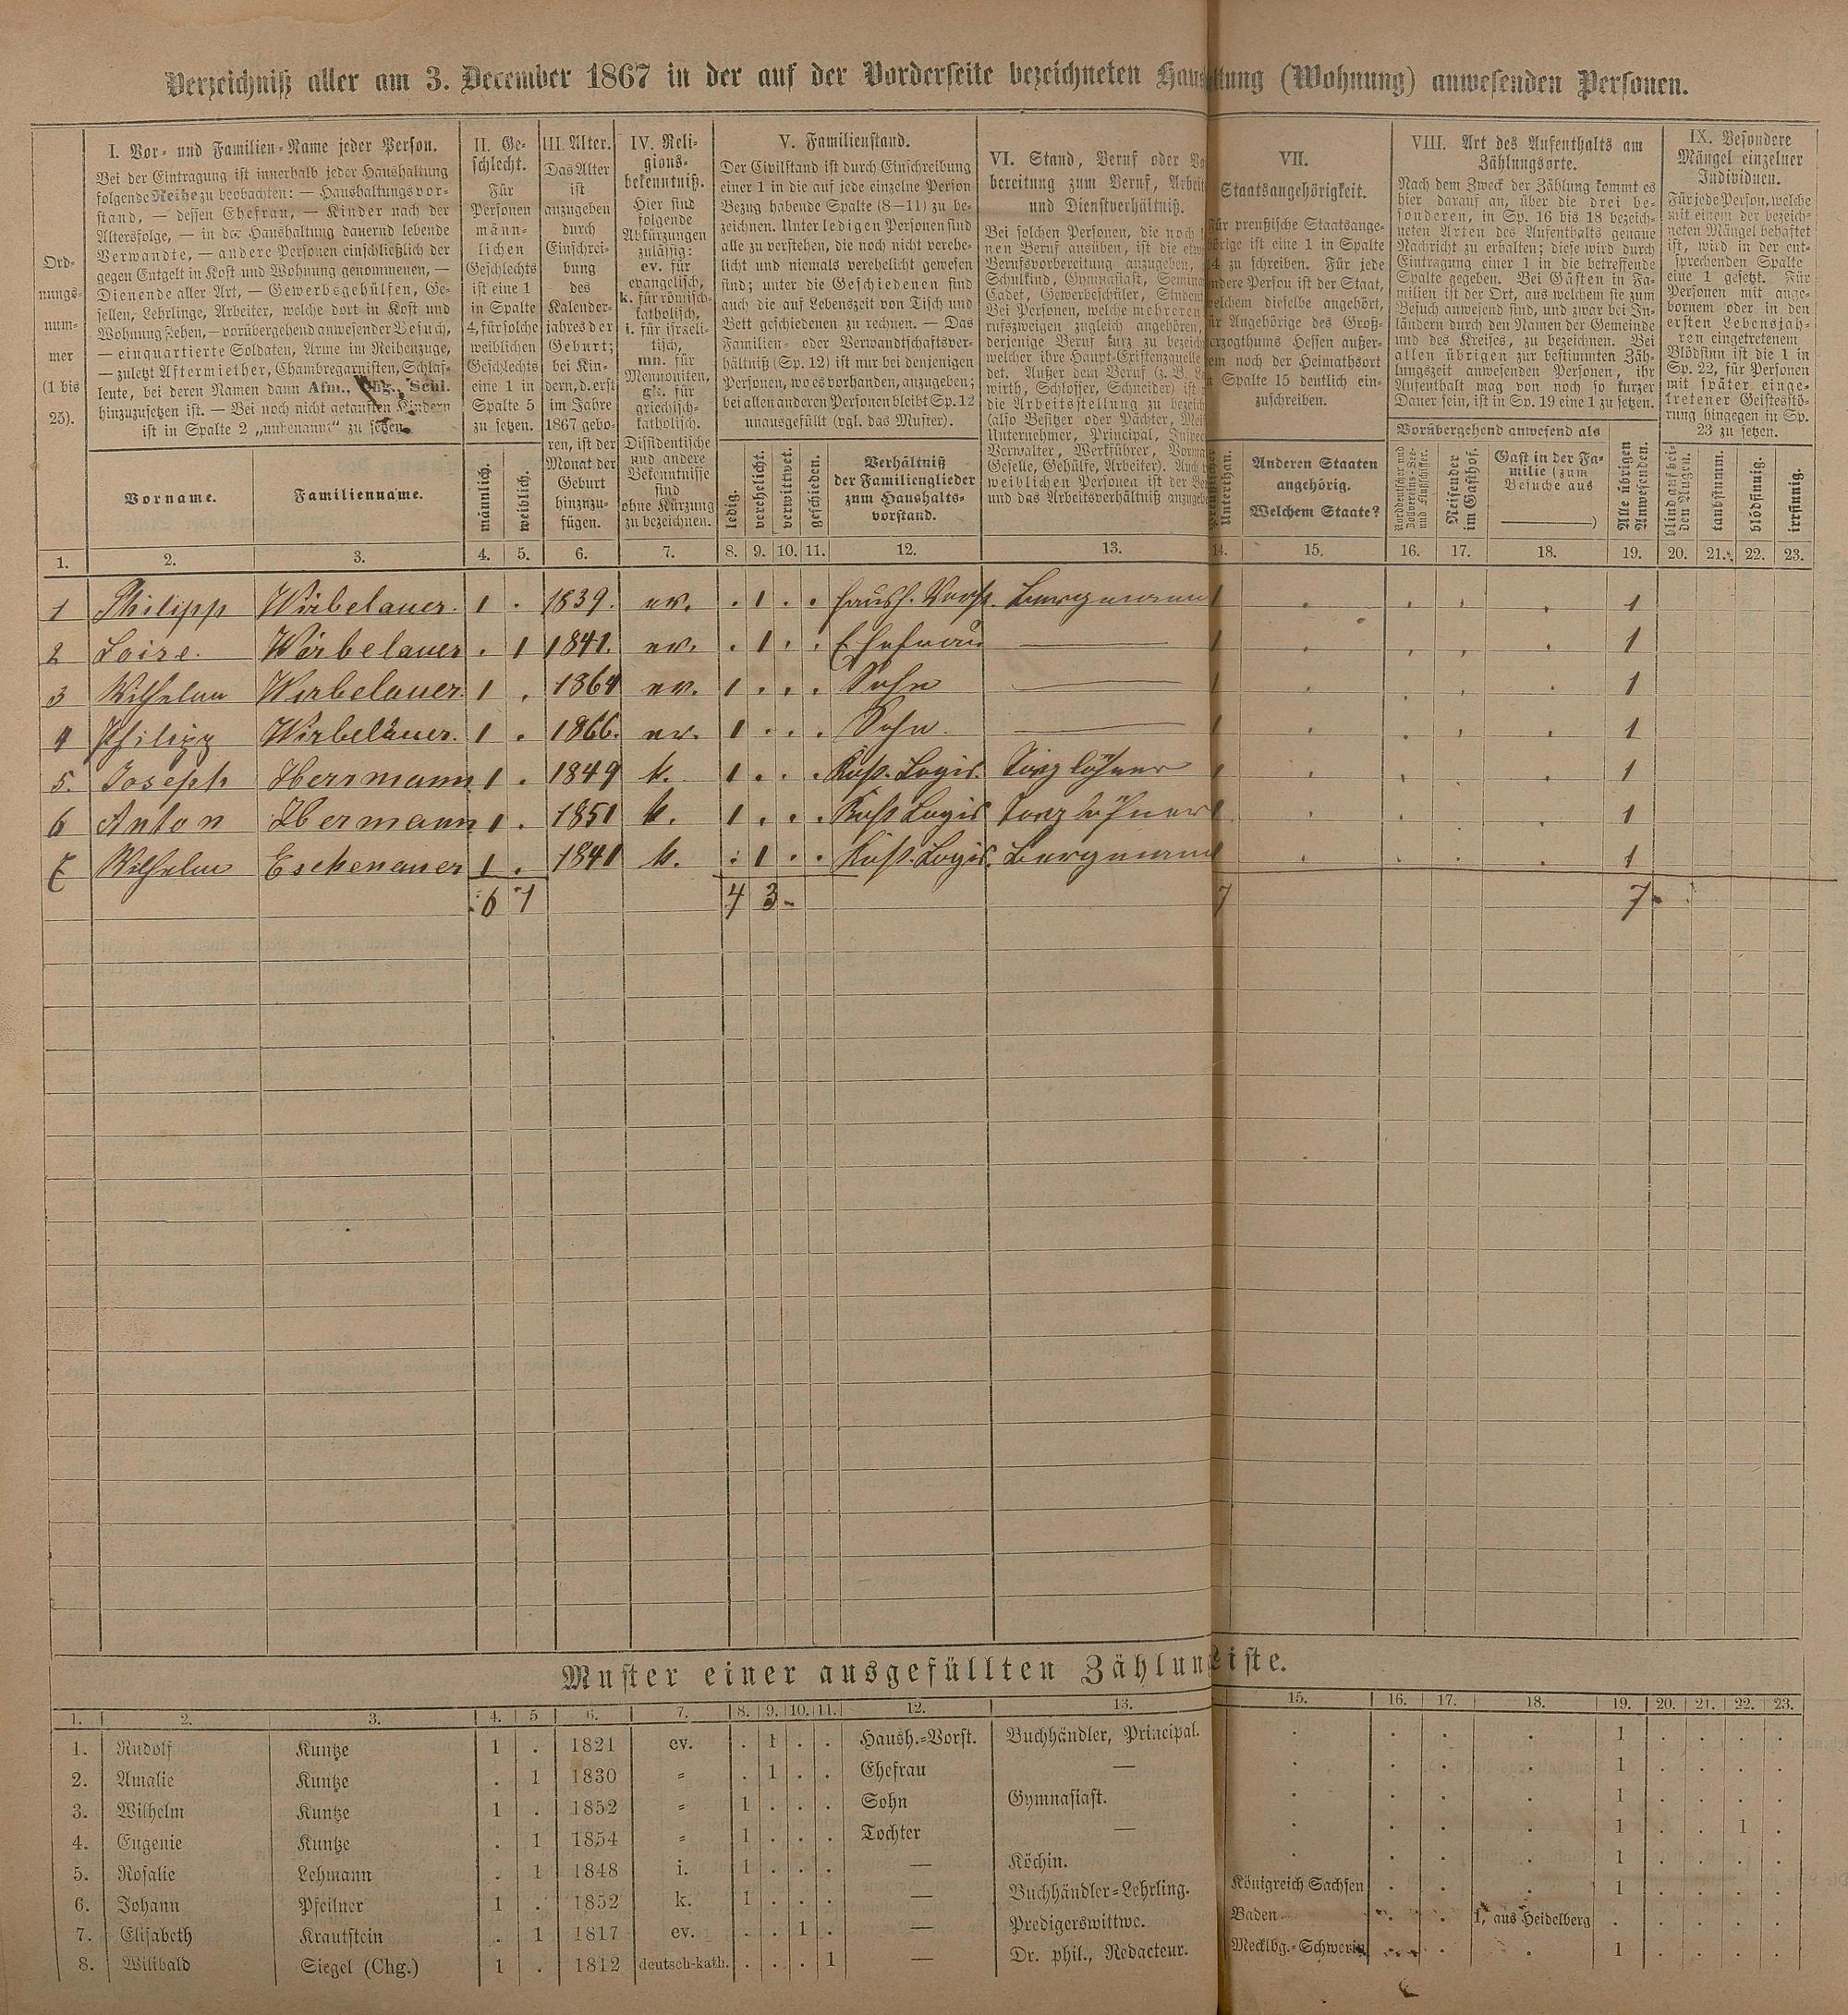 Verzeichniß aller am 3. December 1867 in der auf der Vorderseite bezeichneten Haushaltung (Wohnung) anwesenden Personen.
Ord-
nungs-
num-
mer
(1 bis
25).
I. Vor- und Familien-Name jeder Person.
Bei der Eintragung ist innerhalb jeder Haushaltung
folgende Reihe zu beobachten: — Haushaltungsvor-
stand, — dessen Ehefrau, — Kinder nach der
Altersfolge, — in der Haushaltung dauernd lebende
Verwandte, — andere Personen einschließlich der
gegen Entgelt in Kost und Wohnung genommenen, —
Dienende aller Art, — Gewerbsgehülfen, Ge-
sellen, Lehrlinge, Arbeiter, welche dort in Kost und
Wohnung stehen, — vorübergehend anwesender Besuch,
— einquartierte Soldaten, Arme im Reihenzuge,
— zuletzt Aftermiether, Chambregarnisten, Schlaf-
leute, bei deren Namen dann Afm., Chg., Schl.
hinzuzusetzen ist. — Bei noch nicht getauften Kindern
ist in Spalte 2 „unbenannt“ zu setzen.
Vorname.
Familienname.
II. Ge-
schlecht.
Für
Personen
männ-
lichen
Geschlechts
ist eine 1
in Spalte
4, für solche
weiblichen
Geschlechts
eine 1 in
Spalte 5
zu setzen.
männlich.
weiblich.
III. Alter.
Das Alter
ist
anzugeben
durch
Einschrei-
bung
des
Kalender-
jahres der
Geburt;
bei Kin-
dern, d. erst
im Jahre
1867 gebo-
ren, ist der
Monat der
Geburt
hinzuzu-
fügen.
IV. Reli-
gions-
bekenntniß.
Hier sind
folgende
Abkürzungen
zulässig:
ev. für
evangelisch,
k. für römisch-
katholisch,
i. für israeli-
tisch,
mn. für
Mennoniten,
gk. für
griechisch-
katholisch.
Dissidentische
und andere
Bekenntnisse
sind
ohne Kürzung
zu bezeichnen.
V. Familienstand.
Der Civilstand ist durch Einschreibung
einer 1 in die auf jede einzelne Person
Bezug habende Spalte (8—11) zu be-
zeichnen. Unter ledigen Personen sind
alle zu verstehen, die noch nicht verehe-
licht und niemals verehelicht gewesen
sind; unter die Geschiedenen sind
auch die auf Lebenszeit von Tisch und
Bett geschiedenen zu rechnen. — Das
Familien- oder Verwandtschaftsver-
hältniß (Sp. 12) ist nur bei denjenigen
Personen, wo es vorhanden, anzugeben;
bei allen anderen Personen bleibt Sp. 12
unausgefüllt (vgl. das Muster).
ledig.
verehelicht.
verwittwet.
geschieden.
Verhältniß
der Familienglieder
zum Haushalts-
vorstand.
VI. Stand, Beruf oder Vor
bereitung zum Beruf, Arbeit
und Dienstverhältniß.
Bei solchen Personen, die noch
nen Beruf ausüben, ist die etw
Berufsvorbereitung anzugeben,
Schulkind, Gymnasiast, Semin
Cadet, Gewerbeschüler, Student
Bei Personen, welche mehreren
rufszweigen zugleich angehören,
derjenige Beruf kurz zu bezeich
welcher ihre Haupt-Existenzquelle
det. Außer dem Beruf (z. B. L
wirth, Schlosser, Schneider) ist
die Arbeitsstellung zu bezeich
(also Besitzer oder Pächter, Mei
Unternehmer, Principal, Inspec
Verwalter, Werkführer, Vorma
Geselle, Gehülfe, Arbeiter). Auch
weiblichen Personen ist der Be
und das Arbeitsverhältniß anzugeb
VII.
Staatsangehörigkeit.
Für preußische Staatsange-
hörige ist eine 1 in Spalte
14 zu schreiben. Für jede
andere Person ist der Staat,
welchem dieselbe angehört,
für Angehörige des Groß-
herzogthums Hessen außer-
dem noch der Heimathsort
in Spalte 15 deutlich ein-
zuschreiben.
Unterthan.
Anderen Staaten
angehörig.
Welchem Staate?
VIII. Art des Aufenthalts am
Zählungsorte.
Nach dem Zweck der Zählung kommt es
hier darauf an, über die drei be-
sonderen, in Sp. 16 bis 18 bezeich-
neten Arten des Aufenthalts genaue
Nachricht zu erhalten; diese wird durch
Eintragung einer 1 in die betreffende
Spalte gegeben. Bei Gästen in Fa-
milien ist der Ort, aus welchem sie zum
Besuch anwesend sind, und zwar bei In-
ländern durch den Namen der Gemeinde
und des Kreises, zu bezeichnen. Bei
allen übrigen zur bestimmten Zäh-
lungszeit anwesenden Personen, ihr
Aufenthalt mag von noch so kurzer
Dauer sein, ist in Sp. 19 eine 1 zu setzen.
Vorübergehend anwesend als
Norddeutscher und
Zollvereins-See-
und Flußschiffer.
Reisender
im Gasthof.
Gast in der Fa-
milie (zum
Besuche aus
)
Alle übrigen
Anwesenden.
IX. Besondere
Mängel einzelner
Individuen.
Für jede Person, welche
mit einem der bezeich-
neten Mängel behaftet
ist, wird in der ent-
sprechenden Spalte
eine 1 gesetzt. Für
Personen mit ange-
bornem oder in den
ersten Lebensjah-
ren eingetretenem
Blödsinn ist die 1 in
Sp. 22, für Personen
mit später einge-
tretener Geistesstö-
rung hingegen in Sp.
23 zu setzen.
blind auf bei-
den Augen.
taubstumm.
blödsinnig.
irrsinnig.
1. 2. 3. 4. 5. 6. 7. 8. 9. 10. 11. 12. 13. 14. 15. 16. 17. 18. 19. 20. 21. 22. 23.
1 Philipp Wirbelauer. 1 . 1839. ev. . 1 . . Haush. Vorst. Bergmann 1 . . . . 1
2 Loise. Wirbelauer . 1 1841. ev. . 1 . . Ehefrau — 1 . . . . 1
3 Wilhelm Wirbelauer. 1 . 1864 ev. 1 . . . Sohn — 1 . . . . 1
4 Philipp Wirbelauer. 1 . 1866. ev. 1 . . . Sohn. — 1 . . . . 1
5. Joseph Herrmann 1 . 1849 k. 1 . . . Kost. Logis. Taglöhner 1 . . . . 1
6 Anton Hermann 1 . 1851 k. 1 . . . Kost Logis Taglöhner 1 . . . . 1
7 Wilhelm Eschenauer 1 . 1841 k. . 1 . . Kost. Logis. Bergmann 1 . . . . 1
6 1 4 3 - 7 7
Muster einer ausgefüllten Zählungsliste.
1. 2. 3. 4. 5 6. 7. 8. 9. 10. 11. 12. 13. 15. 16. 17. 18. 19. 20. 21. 22. 23.
1. Rudolf Kuntze 1 . 1821 ev. . 1 . . Haush.-Vorst. Buchhändler, Principal. . . . . 1 . . . .
2. Amalie Kuntze . 1 1830 „ . 1 . . Ehefrau — . . . . 1 . . . .
3. Wilhelm Kuntze 1 . 1852 „ 1 . . . Sohn Gymnasiast. . . . . 1 . . . .
4. Eugenie Kuntze . 1 1854 „ 1 . . . Tochter — . . . . 1 . . 1 .
5. Rosalie Lehmann . 1 1848 i. 1 . . . — Köchin. . . . . 1 . . . .
6. Johann Pfeilner 1 . 1852 k. 1 . . . — Buchhändler-Lehrling. Königreich Sachsen . . . 1 . . . .
7. Elisabeth Krautstein . 1 1817 ev. . . 1 . — Predigerswittwe. Baden . . 1, aus Heidelberg . . . . .
8. Wilibald Siegel (Chg.) 1 . 1812 deutsch-kath. . . . 1 — Dr. phil., Redacteur. Mecklbg.-Schwerin . . . 1 . . . .